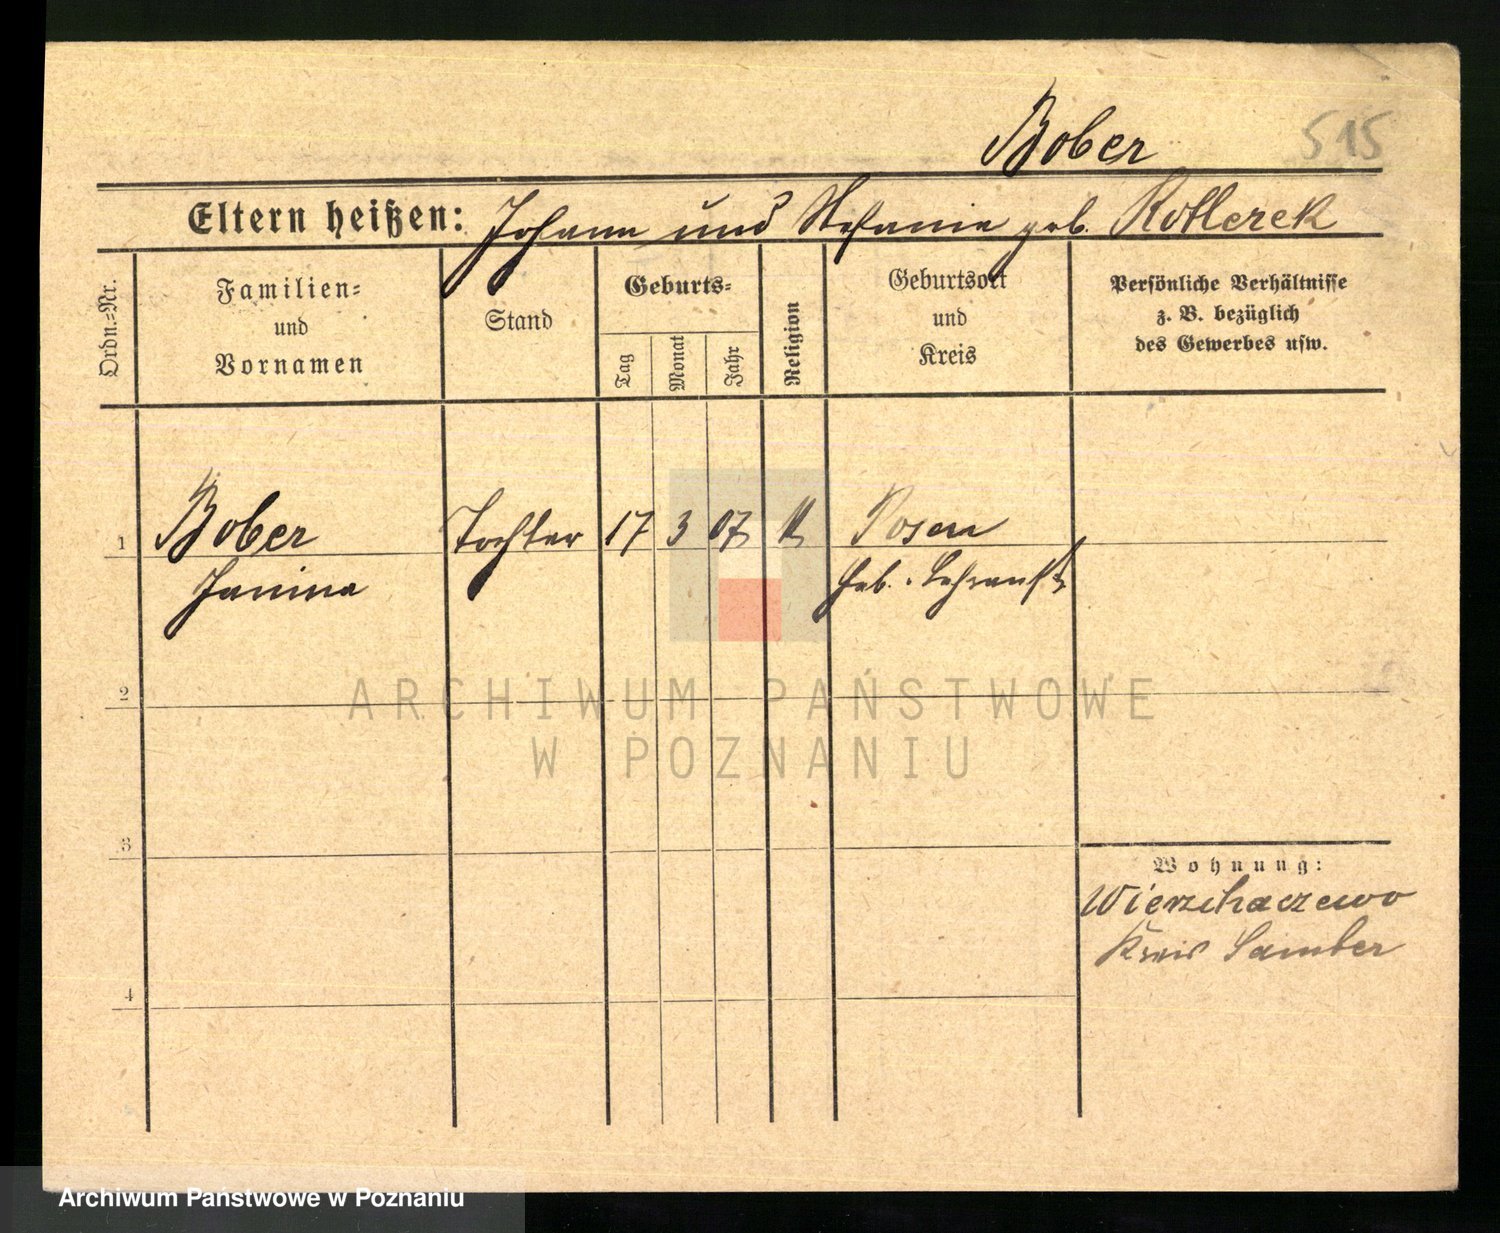 Bober 515
Eltern heißen: Johann und Stefanie geb. Kotlerek
Ordn.=Nr.
Familien=
und
Vornamen
Stand
Geburts=
Tag
Monat
Jahr
Religion
Geburtsort
und
Kreis
Persönliche Verhältnisse
z. B. bezüglich
des Gewerbes usw.
1 Bober Tochter 17 3 07 K Posen
Janina Heb. Lehranst.
2
3
4
Wohnung:
Wierzchaczewo
Kreis Samter
ARCHIWUM PAŃSTWOWE
W POZNANIU
Archiwum Państwowe w Poznaniu